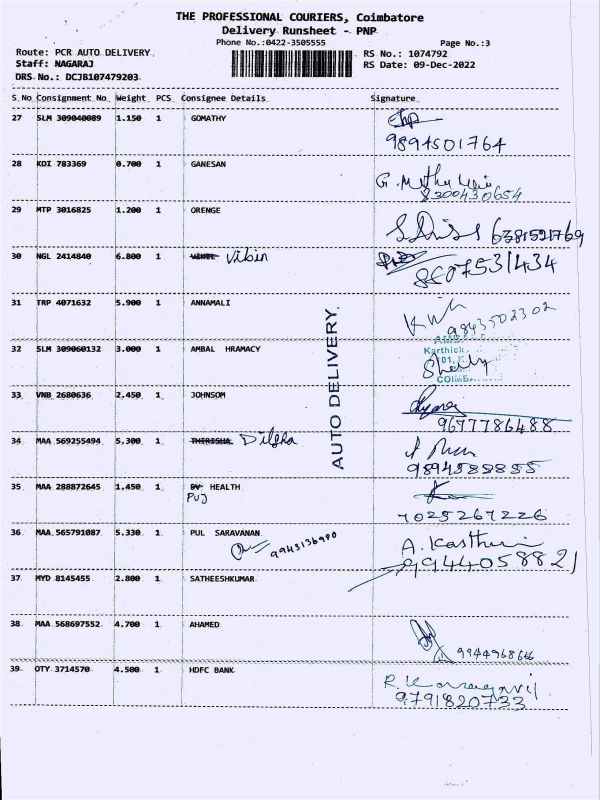 THE PROFESSIONAL COURIERS, Coimbatore
Delivery Runsheet - PNP
Phone No.:0422-3505555
Page No.:3
Route: PCR AUTO DELIVERY.
RS No.: 1074792
Staff: NAGARAJ
RS Date: 09-Dec-2022
DRS No.: DCJB107479203
S.No Consignment No Weight PCS Consignee Details Signature
27 SLM 309040089 1.150 1 GOMATHY
9894501764
28 KDI 783369 0.700 1 GANESAN
8300430654
29 MTP 3016825 1.200 1 ORENGE
6381521769
30 NGL 2414840 6.800 1 Vibin
8807531434
31 TRP 4071632 5.900 1 ANNAMALI
9843502302
32 SLM 309060132 3.000 1 AMBAL HRAMACY
Karthick
33 VNB 2680636 2.450 1 JOHNSOM
9677786488
34 MAA 569255494 5.300 1 THIRISHA Dilsha
9894589855
35 MAA 288872645 1.450 1 DV HEALTH
PUJ
7025267226
36 MAA 565791087 5.330 1 PUL SARAVANAN
9943136980
A. Kasthuri
9944058821
37 MYD 8145455 2.800 1 SATHEESHKUMAR
38 MAA 568697552 4.700 1 AHAMED
39 OTY 3714570 4.500 1 HDFC BANK
9791820733
AUTO DELIVERY.